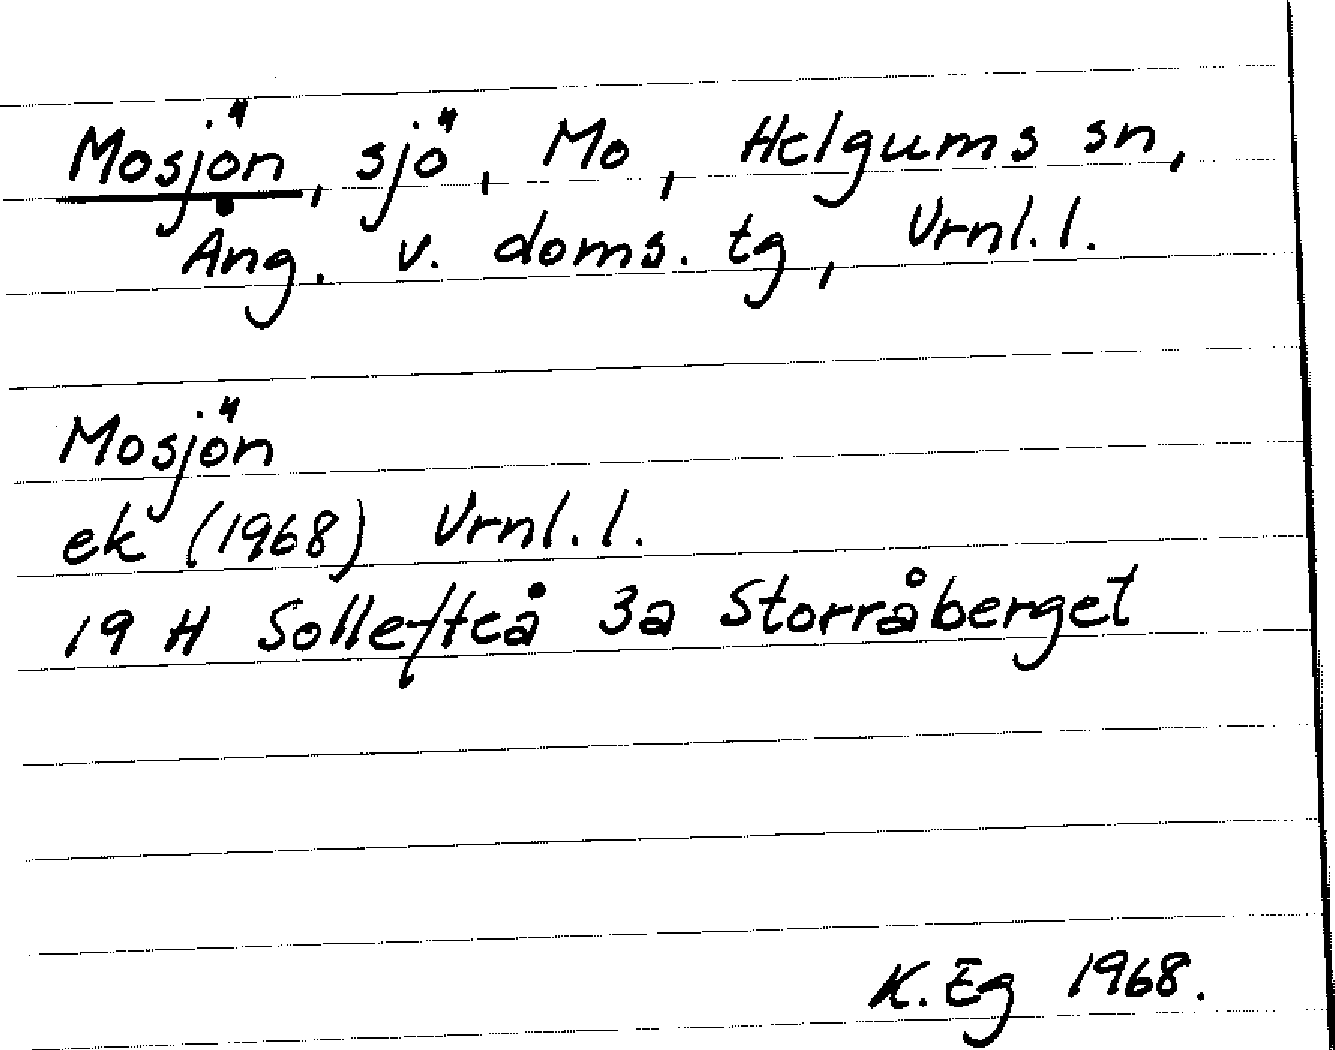 Mosjön, sjö, Mo, Helgums sn,
Ång. v. doms. tg, Vrnl. l.
Mosjön
ek (1968) Vrnl. l.
19 H Sollefteå 3a Storråberget
K. Eg 1968.